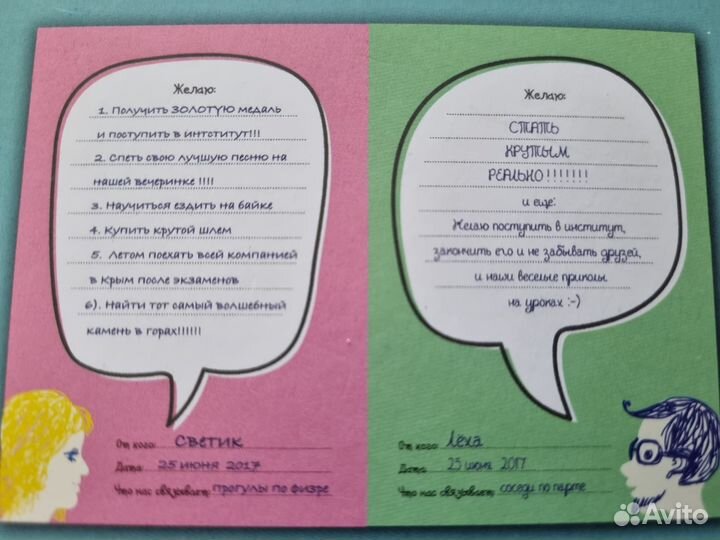 Желаю:
1. Получить ЗОЛОТУЮ медаль
и поступить в интститут!!!
2. Спеть свою лучшую песню на
нашей вечеринке !!!!
3. Научиться ездить на байке
4. Купить крутой шлем
5. Летом поехать всей компанией
в Крым после экзаменов
6). Найти тот самый волшебный
камень в горах!!!!!!
От кого: СВЕТИК
Дата: 25 июня 2017
Что нас связывает: прогулы по физре
Желаю:
СТАТЬ
КРУТЫМ
РЕАЛЬНО!!!!!!!
и еще:
Желаю поступить в институт,
закончить его и не забывать друзей,
и наши веселые приколы
на уроках :-)
От кого: Лёха
Дата: 25 июня 2017
Что нас связывает: соседи по парте
Avito